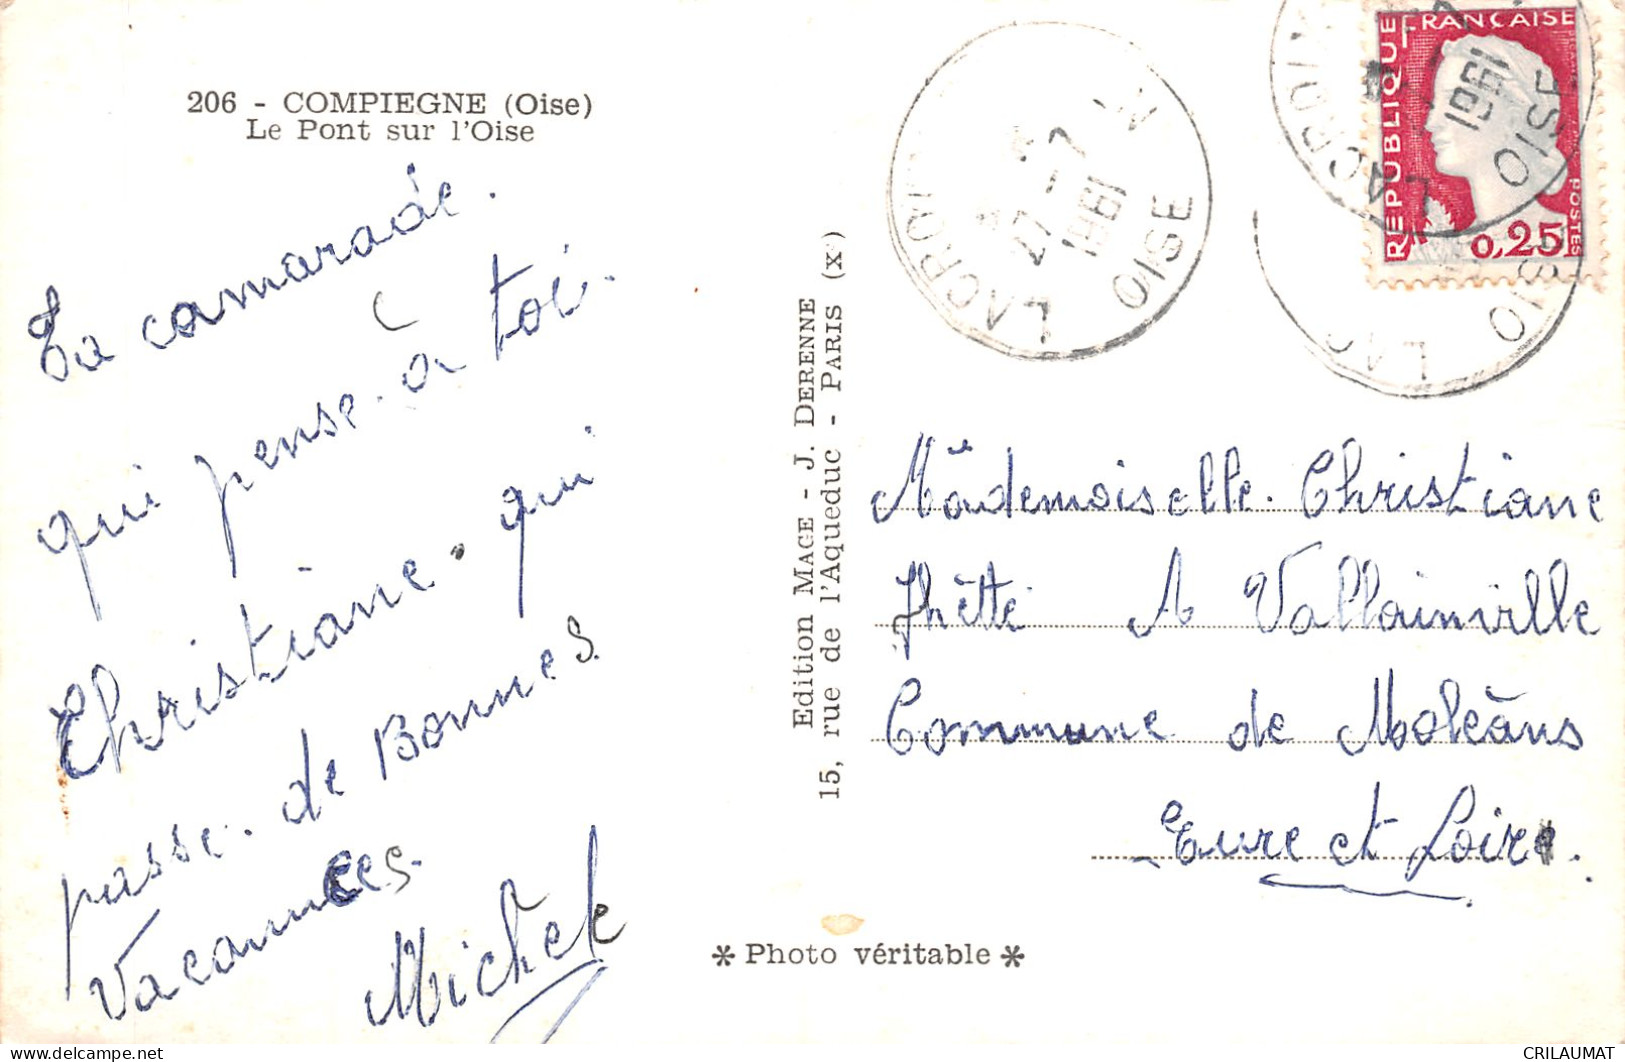 206 - COMPIEGNE (Oise)
Le Pont sur l'Oise
Ta camarade.
qui pense à toi.
Christiane. qui
passe. de Bonnes
Vacannces.
Michele
Edition MAGE - J. DERENNE
15, rue de l'Aqueduc - PARIS (xe)
* Photo véritable *
27 -7
1961
OISE
REPUBLIQUE FRANÇAISE
1961
OISE
POSTES
0,25
OISE
Mademoiselle. Christiane
A Vallainville
Commune de Moléans
Eure et Loire.
CRILAUMAT